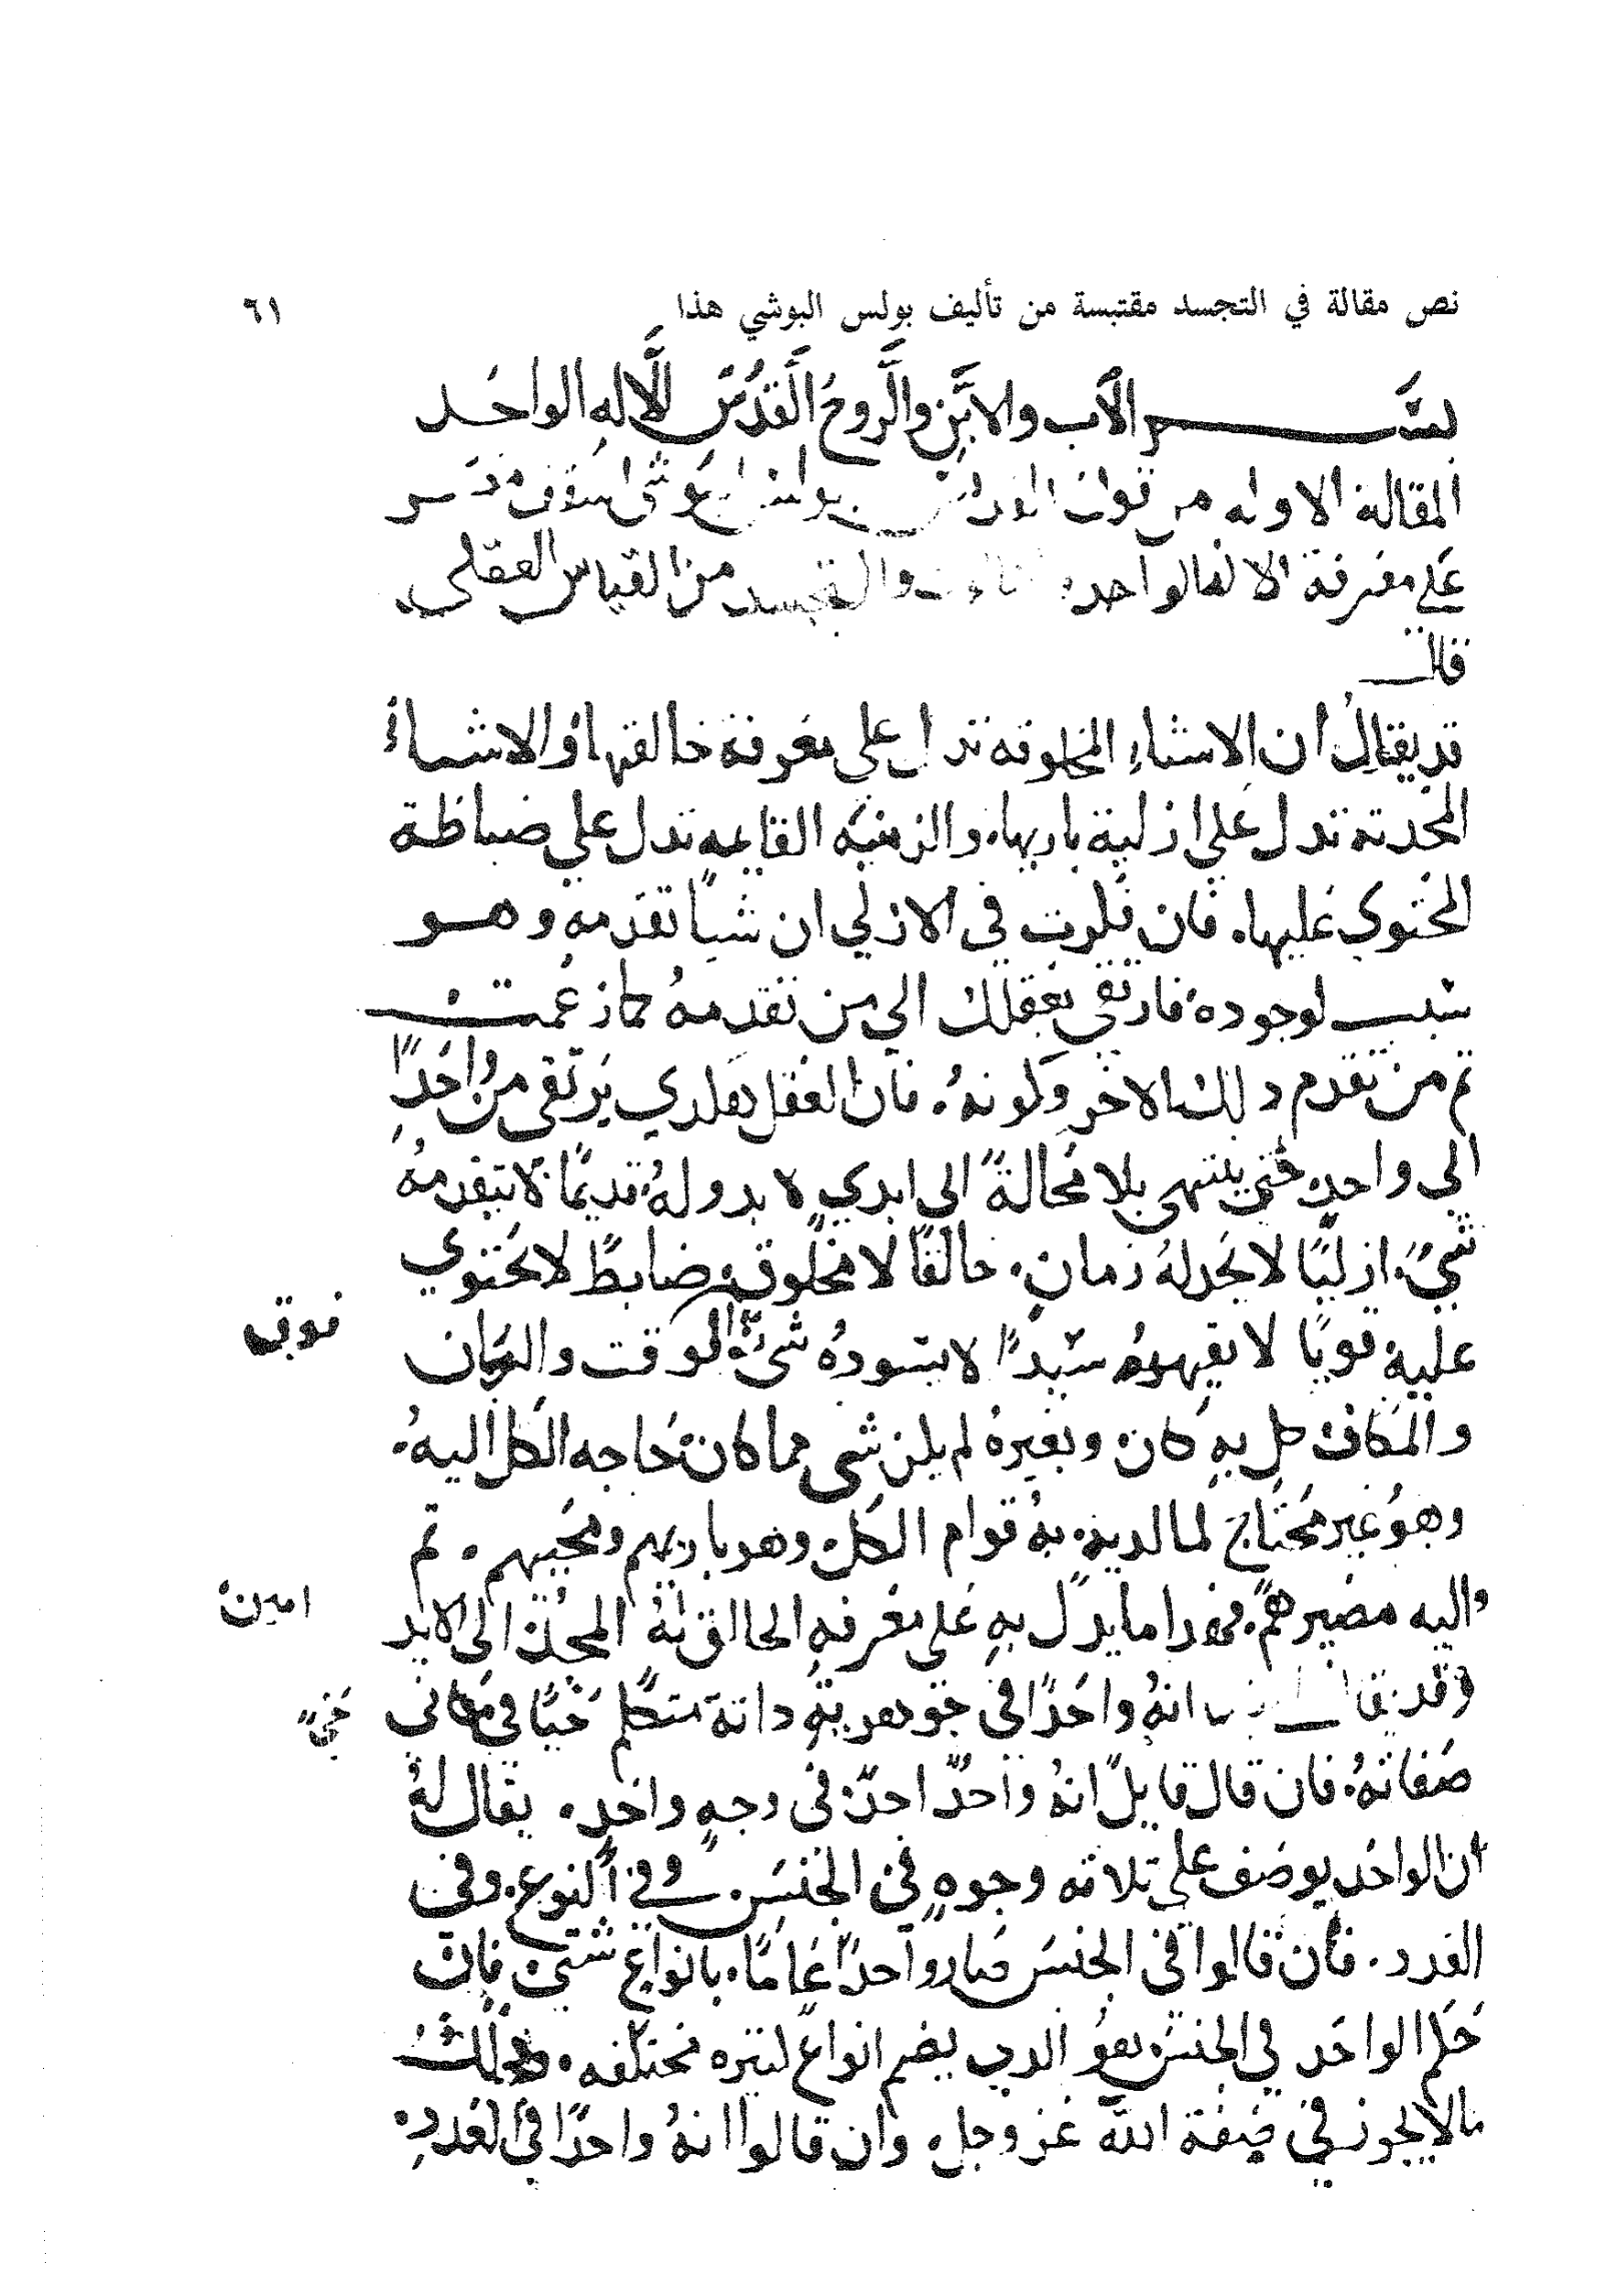 نص مقالة في التجسد مقتبسة من تأليف بولس البوشي هذا
٦١
بسم الاب والابن والروح القدس الاله الواحد
المقالة الاوله من قول القديس بولس البوشى اسقف مصر
على معرفة الاله الواحد والتجسد من القياس العقلى
قال
قد يقال ان الاشياء المخلوقه تدل على معرفة خالقها والاشياء
المحدثه تدل على ازلية باريها. والزمنيه القايمه تدل على ضباطة
المحتوى عليها. فان فكرت في الازلي ان شيا تقدمه وهو
سبب لوجوده فارتقي بعقلك الي من تقدمه كما زعمت
تم من تقدم دلك الاخر وكونه. فان العقل هكدي يرتقى من واحدًا
الي واحد حتى ينتهى بلا محالةً الى ابدي لا بدو له قديمًا لا يتقدمه
شيء ازليًا لا يحد له زمان. خالقًا لا مخلوق ضابطًا لا يحتوي
عليه قويًا لا يقهر سيدًا لا يسوده شيء الوقت والزمان
فوق
والمكان كل به كان وبغيره لم يكن شى مما كان حاجه الكل اليه.
وهو غير محتاج لما لديه. به قوام الكل وهو باريهم ومحييهم. تم
واليه مصيرهم. فهدا ما يدل به على معرفه الخالق له المجد الى الابد
امين
وقد يقال انه واحدًا في جوهريته داته متكلم حيًا في معانى
حيً
صفاته. فان قال قايلً انه واحدً احدً في وجه واحد. يقال له
ان الواحد يوصف على تلاته وجوه في الجنس. وفي النوع. وفى
العدد. فان قالوا فى الجنس صار واحدًا عامًا. بانواع شتى فان
حكم الواحد في الجنس هو الدي يضم انواع كتيره مختلفه. ودلك
مالا يجوز في صفة الله عز وجل. وان قالوا انه واحدًا في العدد